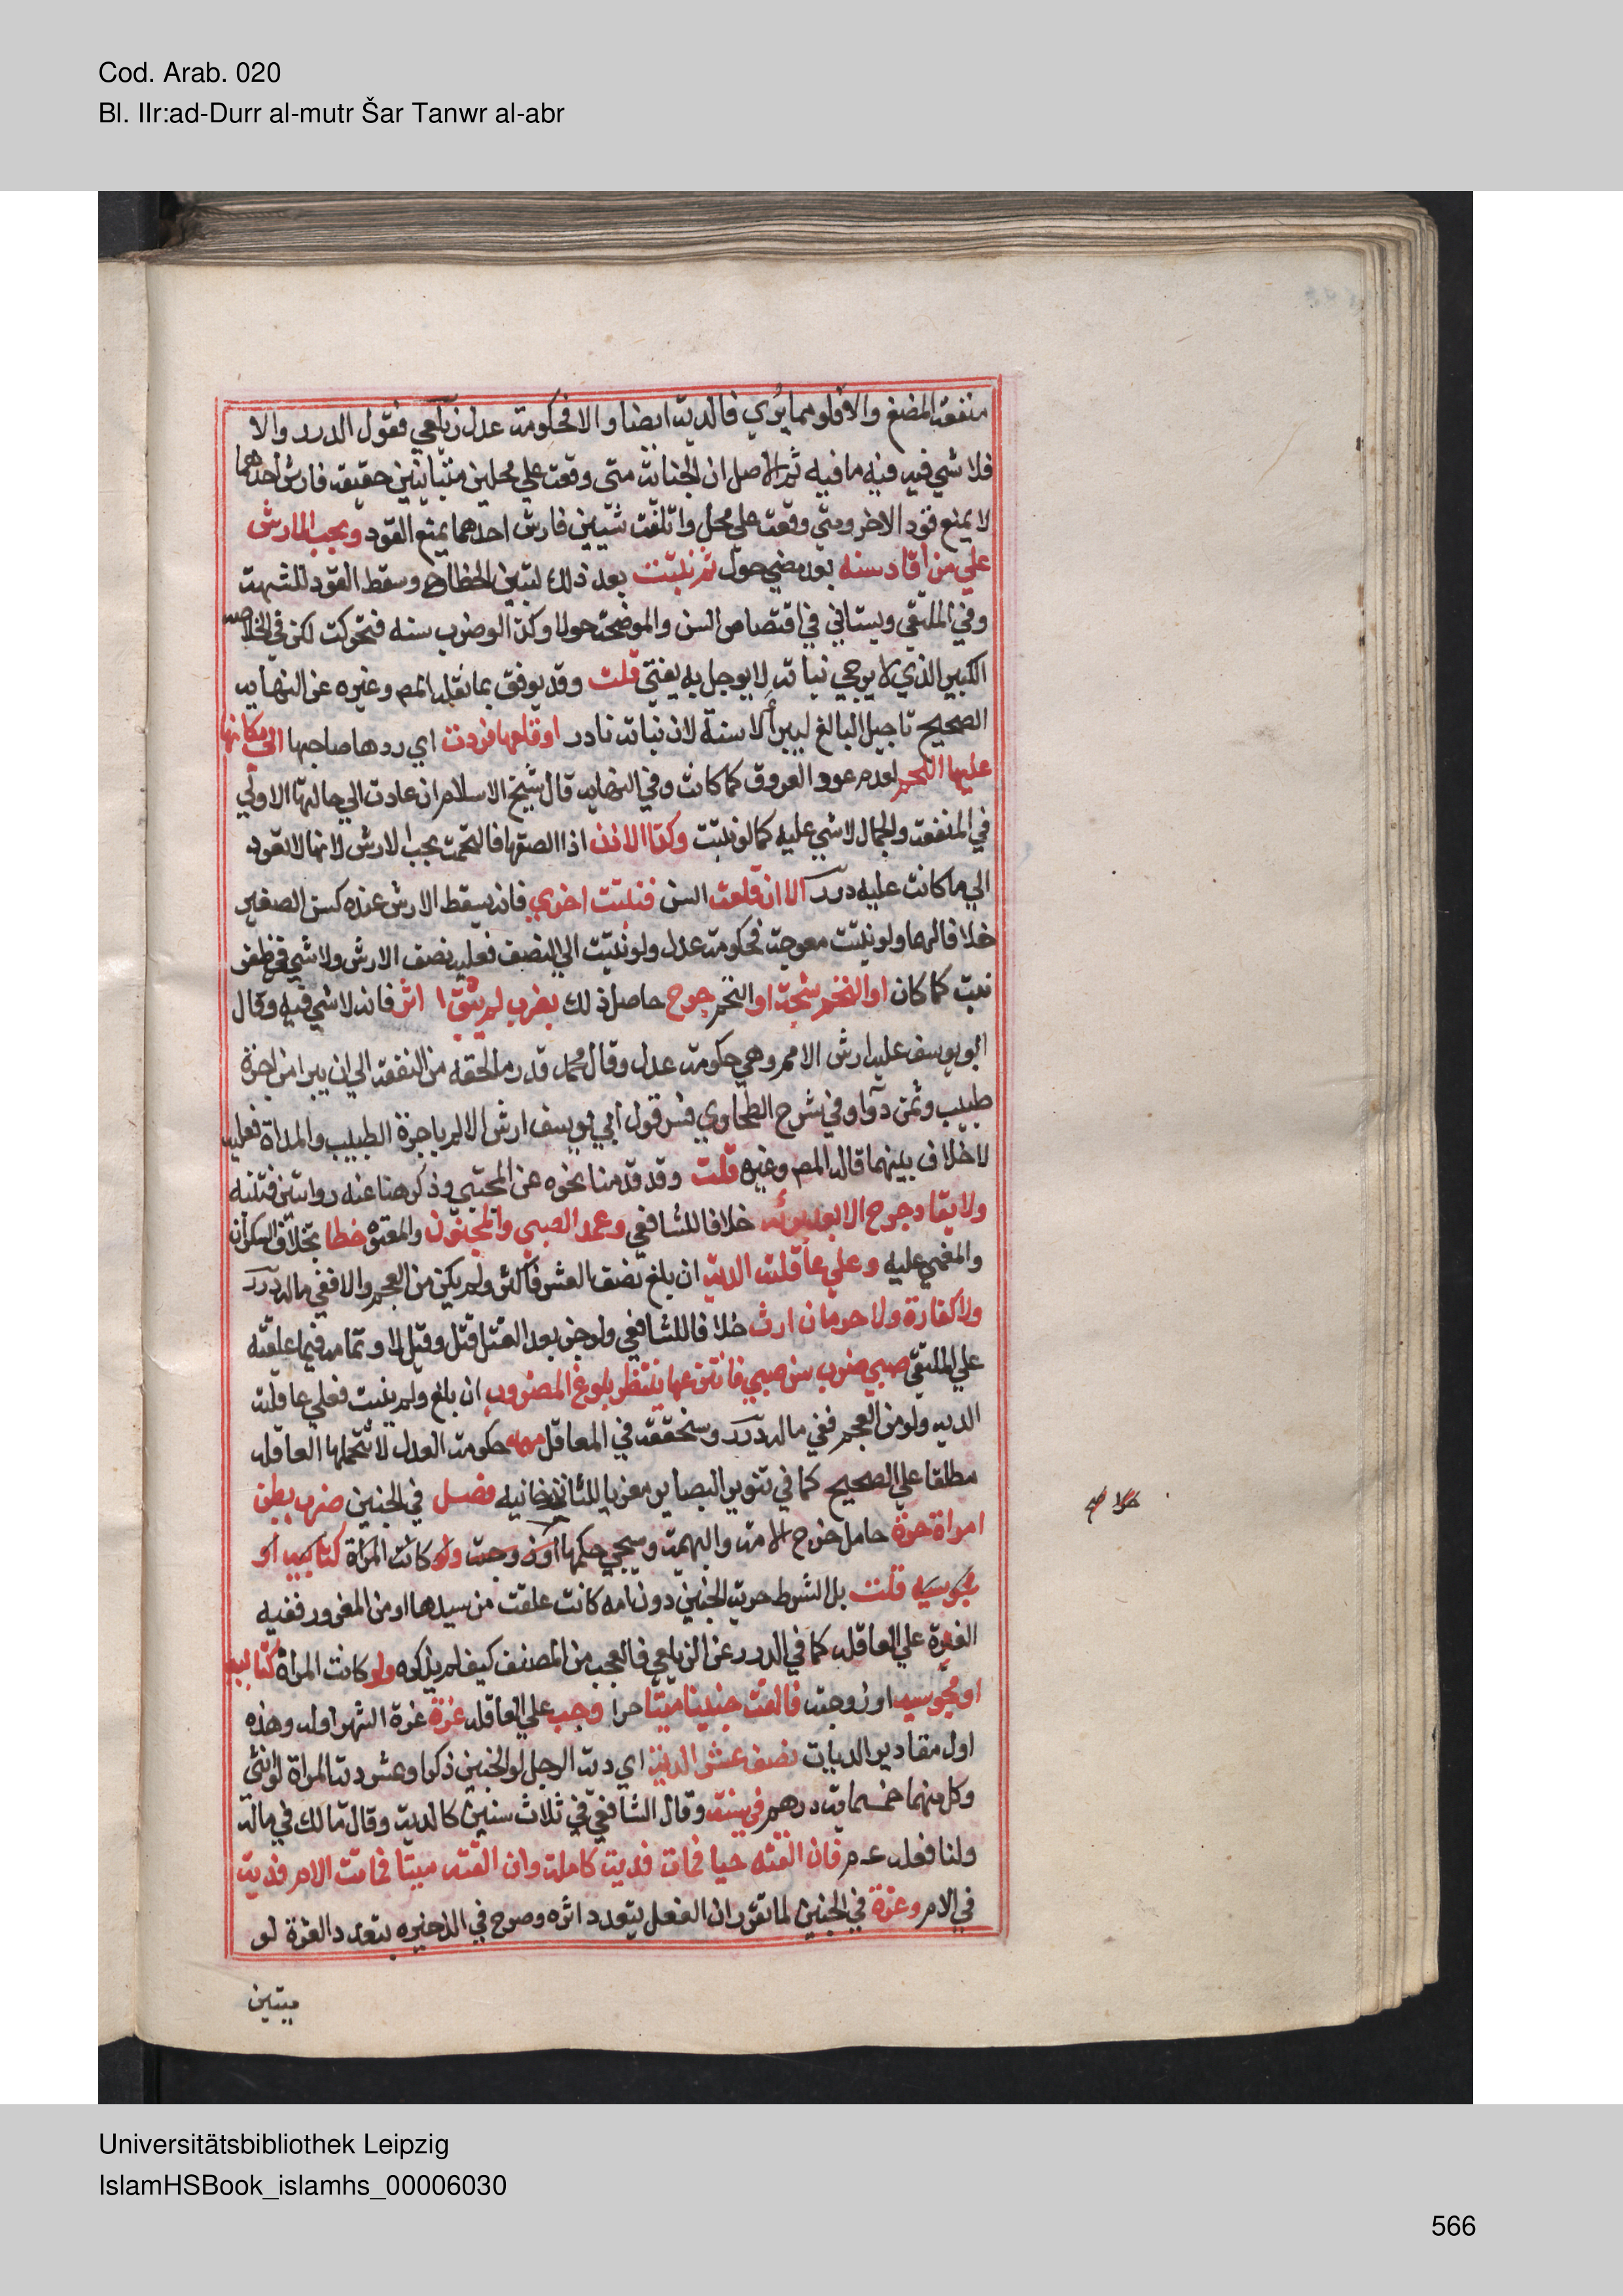 Cod. Arab. 020
Bl. IIr:ad-Durr al-mutr Šar Tanwr al-abr
منفعة المضغ والا فلو مما يُري فالدية ايضا والا فحكومة عدل زيلعي فقول الدرر والا
فلا شي فيه فيه ما فيه ثم الاصل ان الجناية متى وقعت علي محلين متباينين حقيقة فارش احدهما
لا يمنع قود الاخر ومتي وقعت علي محل واتلفت شيئين فارش احدهما يمنع القود ويجب الارش
علي من أقاد سنه بعد مضي حول ثم نبتت بعد ذلك لتبين الخطا ح وسقط القود للشبهة
وفي الملتقي ويستاني في اقتصاص السن والموضحة حولا وكذا لو ضرب سنه فتحركت لكن في الخلاصه
الكبير الذي لا يرجي نباته لا يوجل به يفتي قلت وقد يوفق بما نقله المص وغيره عن النهاية
الصحيح تاجيل البالغ ليبرأ لا سنة لان نباته نادر او قلعها فردت اي ردها صاحبها الي مكانها
عليها اللحم لعدم عود العروق كما كانت وفي النهاية قال شيخ الاسلام ان عادت الي حالتها الاولي
في المنفعة والجمال لا شي عليه كما لو نبتت وكذا الاذن اذا الصقها فالتحمت يجب الارش لانها لا تعود
الي ما كانت عليه درر الا ان قلعت السن فنبتت اخري فانه يسقط الارش عنده كسن الصغير
خلافا لهما ولو نبتت معوجة فحكومة عدل ولو نبتت الي النصف فعليه نصف الارش ولا شي في ظفر
نبت كما كان او التحم شجة او التحم جرح حاصل ذلك بضرب لم يبق ا اثر فانه لا شي فيه وقال
ابو يوسف عليه ارش الالم وهي حكومة عدل وقال محمد قدر ما لحقه من النفقة الي ان يبرا من اجرة
طبيب وثمن دوآ وفي شرح الطحاوي فسر قول ابي يوسف ارش الالم باجرة الطبيب والمداة فعليه
لا خلاف بينهما قاله المص وغيره قلت وقد قدمنا نحوه عن المجتبي وذكر هنا عنه روايتين فتنبه
ولا يقاد جرح الا بعد برئه خلافا للشافعي وعمد الصبي والمجنون والمعتوه خطا بخلاف السكران
والمغمي عليه وعلي عاقلته الدية ان بلغ نصف العشر فاكثر ولم يكن من العجم والا ففي ماله درر
ولا كفارة ولا حرمان ارث خلافا للشافعي ولو جن بعد القتل قتل وقيل لا وتمامه فيما علقته
علي الملتقي صبي ضرب سن صبي فانتزعها ينتظر بلوغ المضروب ان بلغ ولم ينبت فعلي عاقلته
الدية ولو من العجم ففي ماله درر وسنحققه في المعاقل مهمه حكومة العدل لا تتحملها العاقله
مطلقا علي الصحيح كما في تنوير البصاير معزيا للتاتارخانيه فصل في الجنين ضرب بطن
امراة حرة حامل خرج الامة والبهيمة وسيجي حكمهما او زوجت ولو كانت المراة كتابيه او
مجوسيه قلت بل الشرط حرية الجنين دون امه كانت علقت من سيدها او من المغرور ففيه
الغرة علي العاقله كما في الدرر عن الزيلعي فالعجب من المصنف كيف لم يذكره ولو كانت المراة كتابية
او مجوسية او زوجته فالقت جنينا ميتا حرا وجب علي العاقله غرة غرة الشهر اوله وهذه
اول مقادير الديات نصف عشر الدية اي دية الرجل لو الجنين ذكرا وعشر دية المراة لو انثي
وكل منهما خمسماية درهم في سنة وقال الشافعي في ثلاث سنين كالدية وقال مالك في ماله
ولنا فعله ع م فان القته حيا فمات فدية كاملة وان القته ميتا فماتت الام فدية
في الام وغرة في الجنين لما تقرر ان الفعل يتعدد اثره وصرح في الذخيره بتعدد الغرة لو
ميتين
Universitätsbibliothek Leipzig
IslamHSBook_islamhs_00006030
566